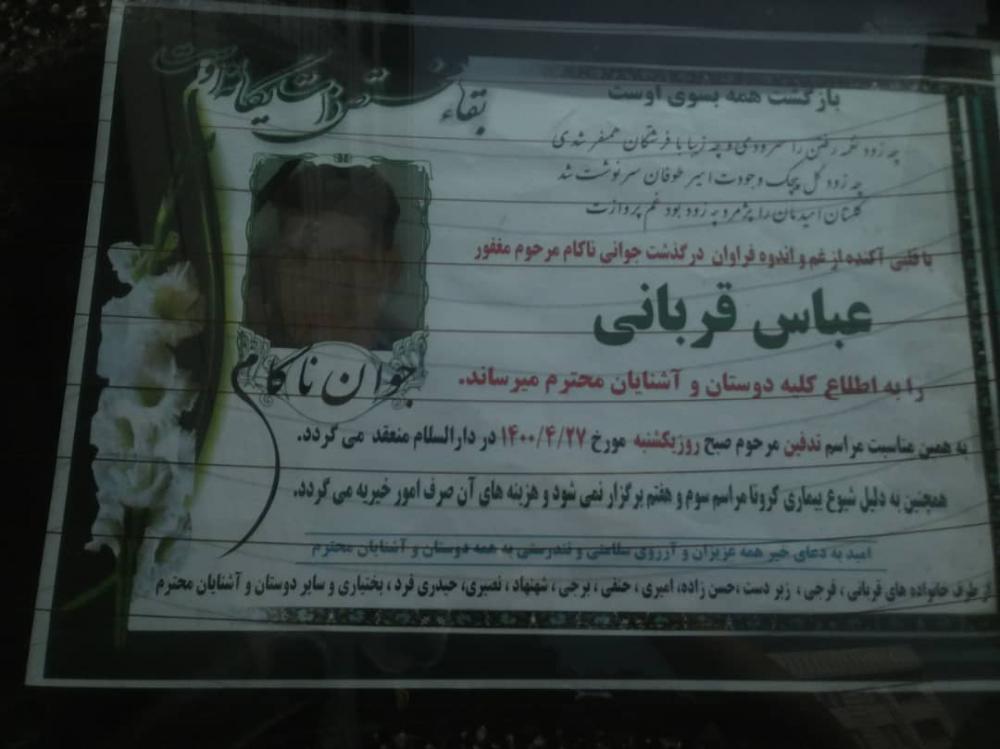 بقاء مختص ذات یگانه اوست
بازگشت همه بسوی اوست
چه زود نغمه رفتن را سرودی و چه زیبا با فرشتگان همسفر شدی
چه زود گل پیچک وجودت اسیر طوفان سرنوشت شد
گلستان امیدمان را پژمرد چه زود بود غم پروازت
با قلبی آکنده از غم و اندوه فراوان درگذشت جوانی ناکام مرحوم مغفور
عباس قربانی
جوان ناکام
را به اطلاع کلیه دوستان و آشنایان محترم میرساند.
به همین مناسبت مراسم تدفین مرحوم صبح روز یکشنبه مورخ ۱۴۰۰/۴/۲۷ در دارالسلام منعقد می گردد.
همچنین به دلیل شیوع بیماری کرونا مراسم سوم و هفتم برگزار نمی شود و هزینه های آن صرف امور خیریه می گردد.
امید به دعای خیر همه عزیزان و آرزوی سلامتی و تندرستی به همه دوستان و آشنایان محترم
از طرف خانواده های قربانی ، فرجی ، زبر دست ،حسن زاده، امیری ، حنفی ، برجی ، شهنهاد ، نصیری، حیدری فرد ، بختیاری و سایر دوستان و آشنایان محترم